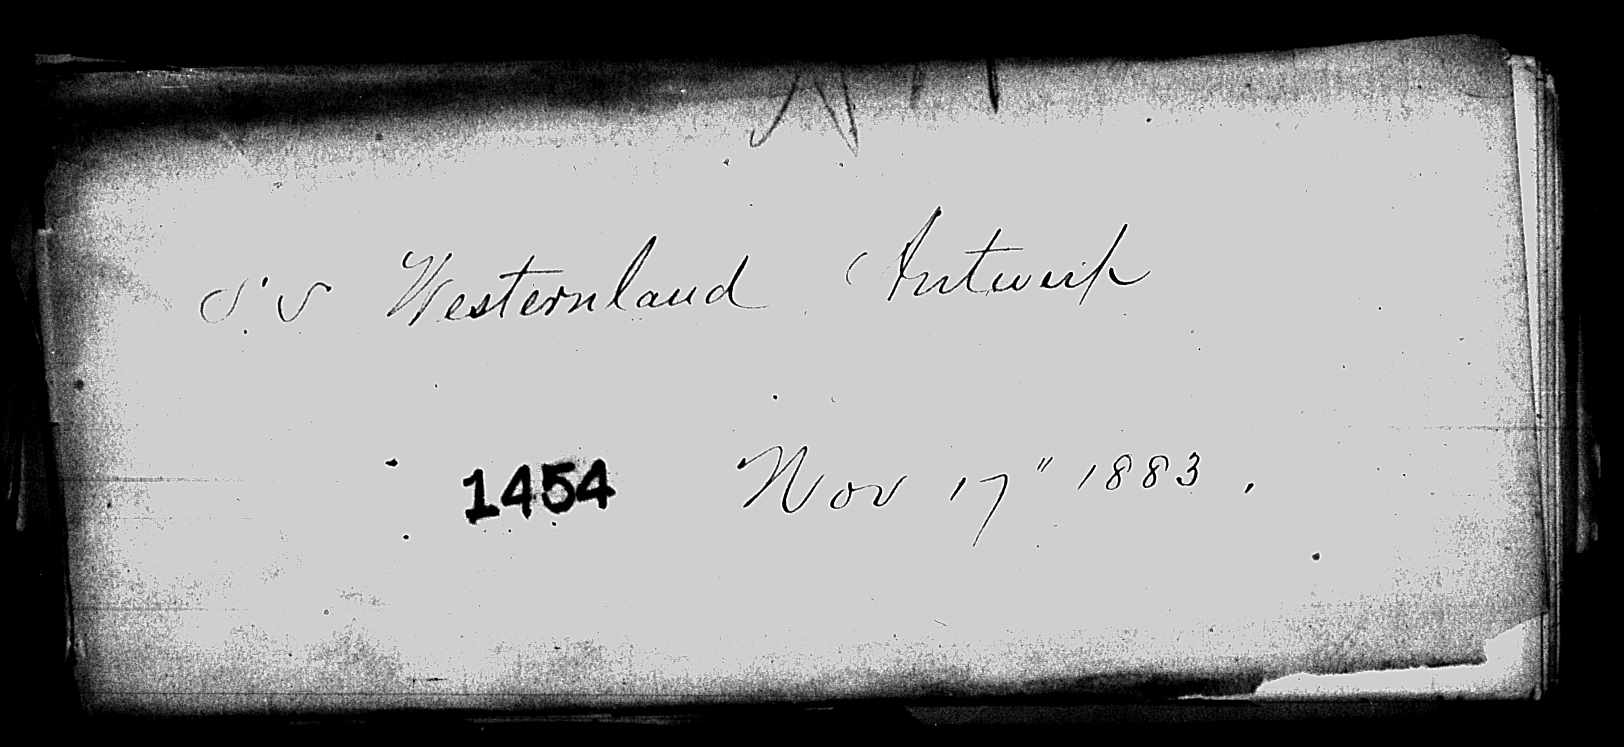 S.S Westernland Antwerp
1454 Nov 17" 1883.